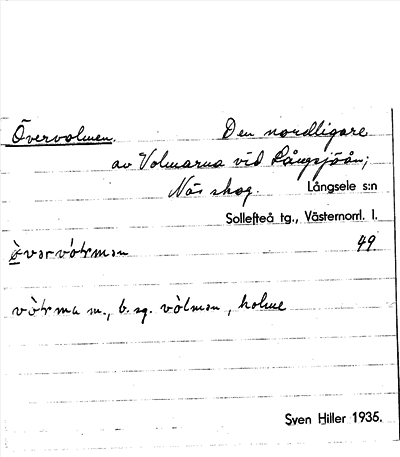 Övervolmen. Den nordligare
av Volmarna vid Långsjöån;
Näs skog. Långsele s:n
Sollefteå tg., Västernorrl. l.
49
m., b. sg. vòlmən, holme
Sven Hiller 1935.